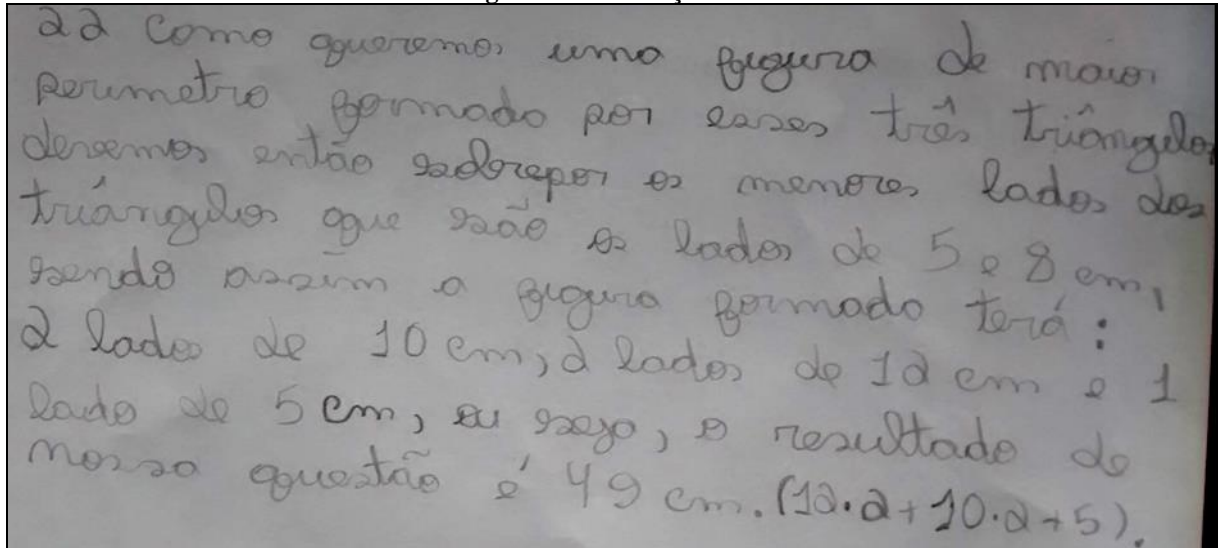 22 Como queremos uma figura de maior
perímetro formado por esses três triângulos
devemos então sobrepor os menores lados dos
triângulos que são os lados de 5 e 8 cm,
sendo assim a figura formado terá:
2 lados de 10 cm, 2 lados de 12 cm e 1
lado de 5 cm, ou seja, o resultado de
nossa questão é 49 cm. (12.2+10.2+5).